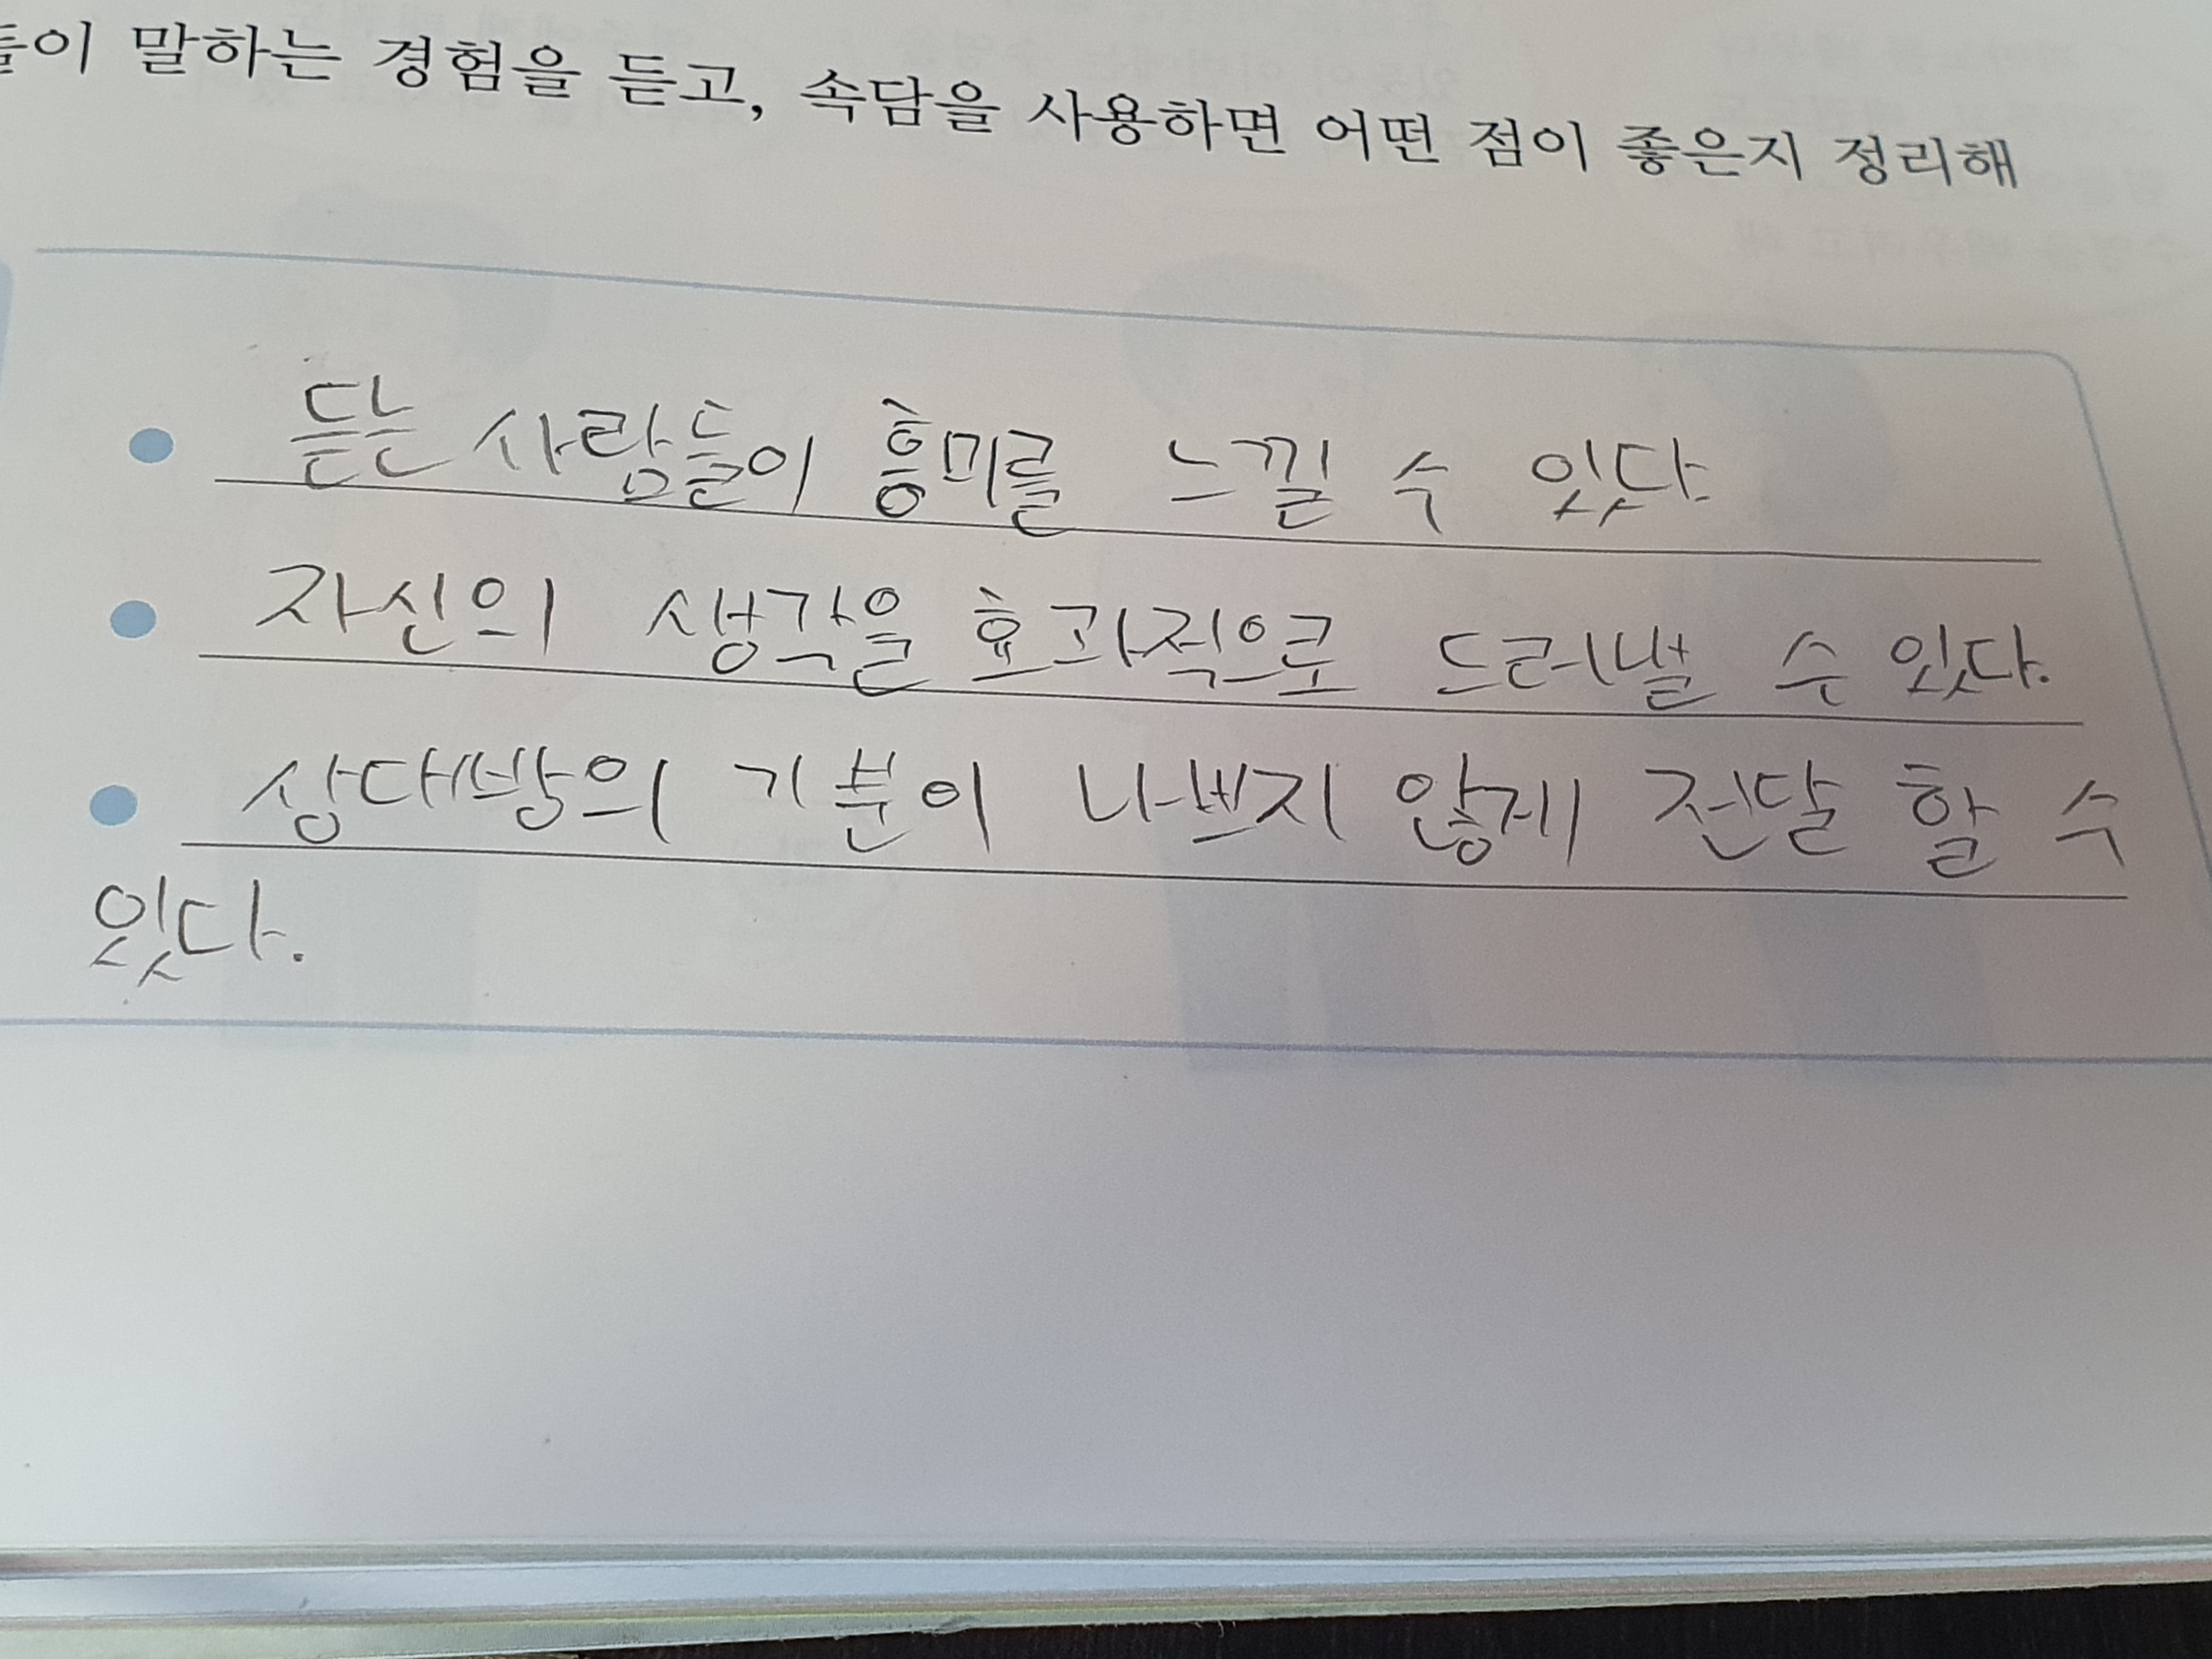 들이 말하는 경험을 듣고, 속담을 사용하면 어떤 점이 좋은지 정리해
듣는 사람들이 흥미를 느낄 수 있다.
자신의 생각을 효과적으로 드러낼 수 있다.
상대방의 기분이 나쁘지 않게 전달 할 수
있다.